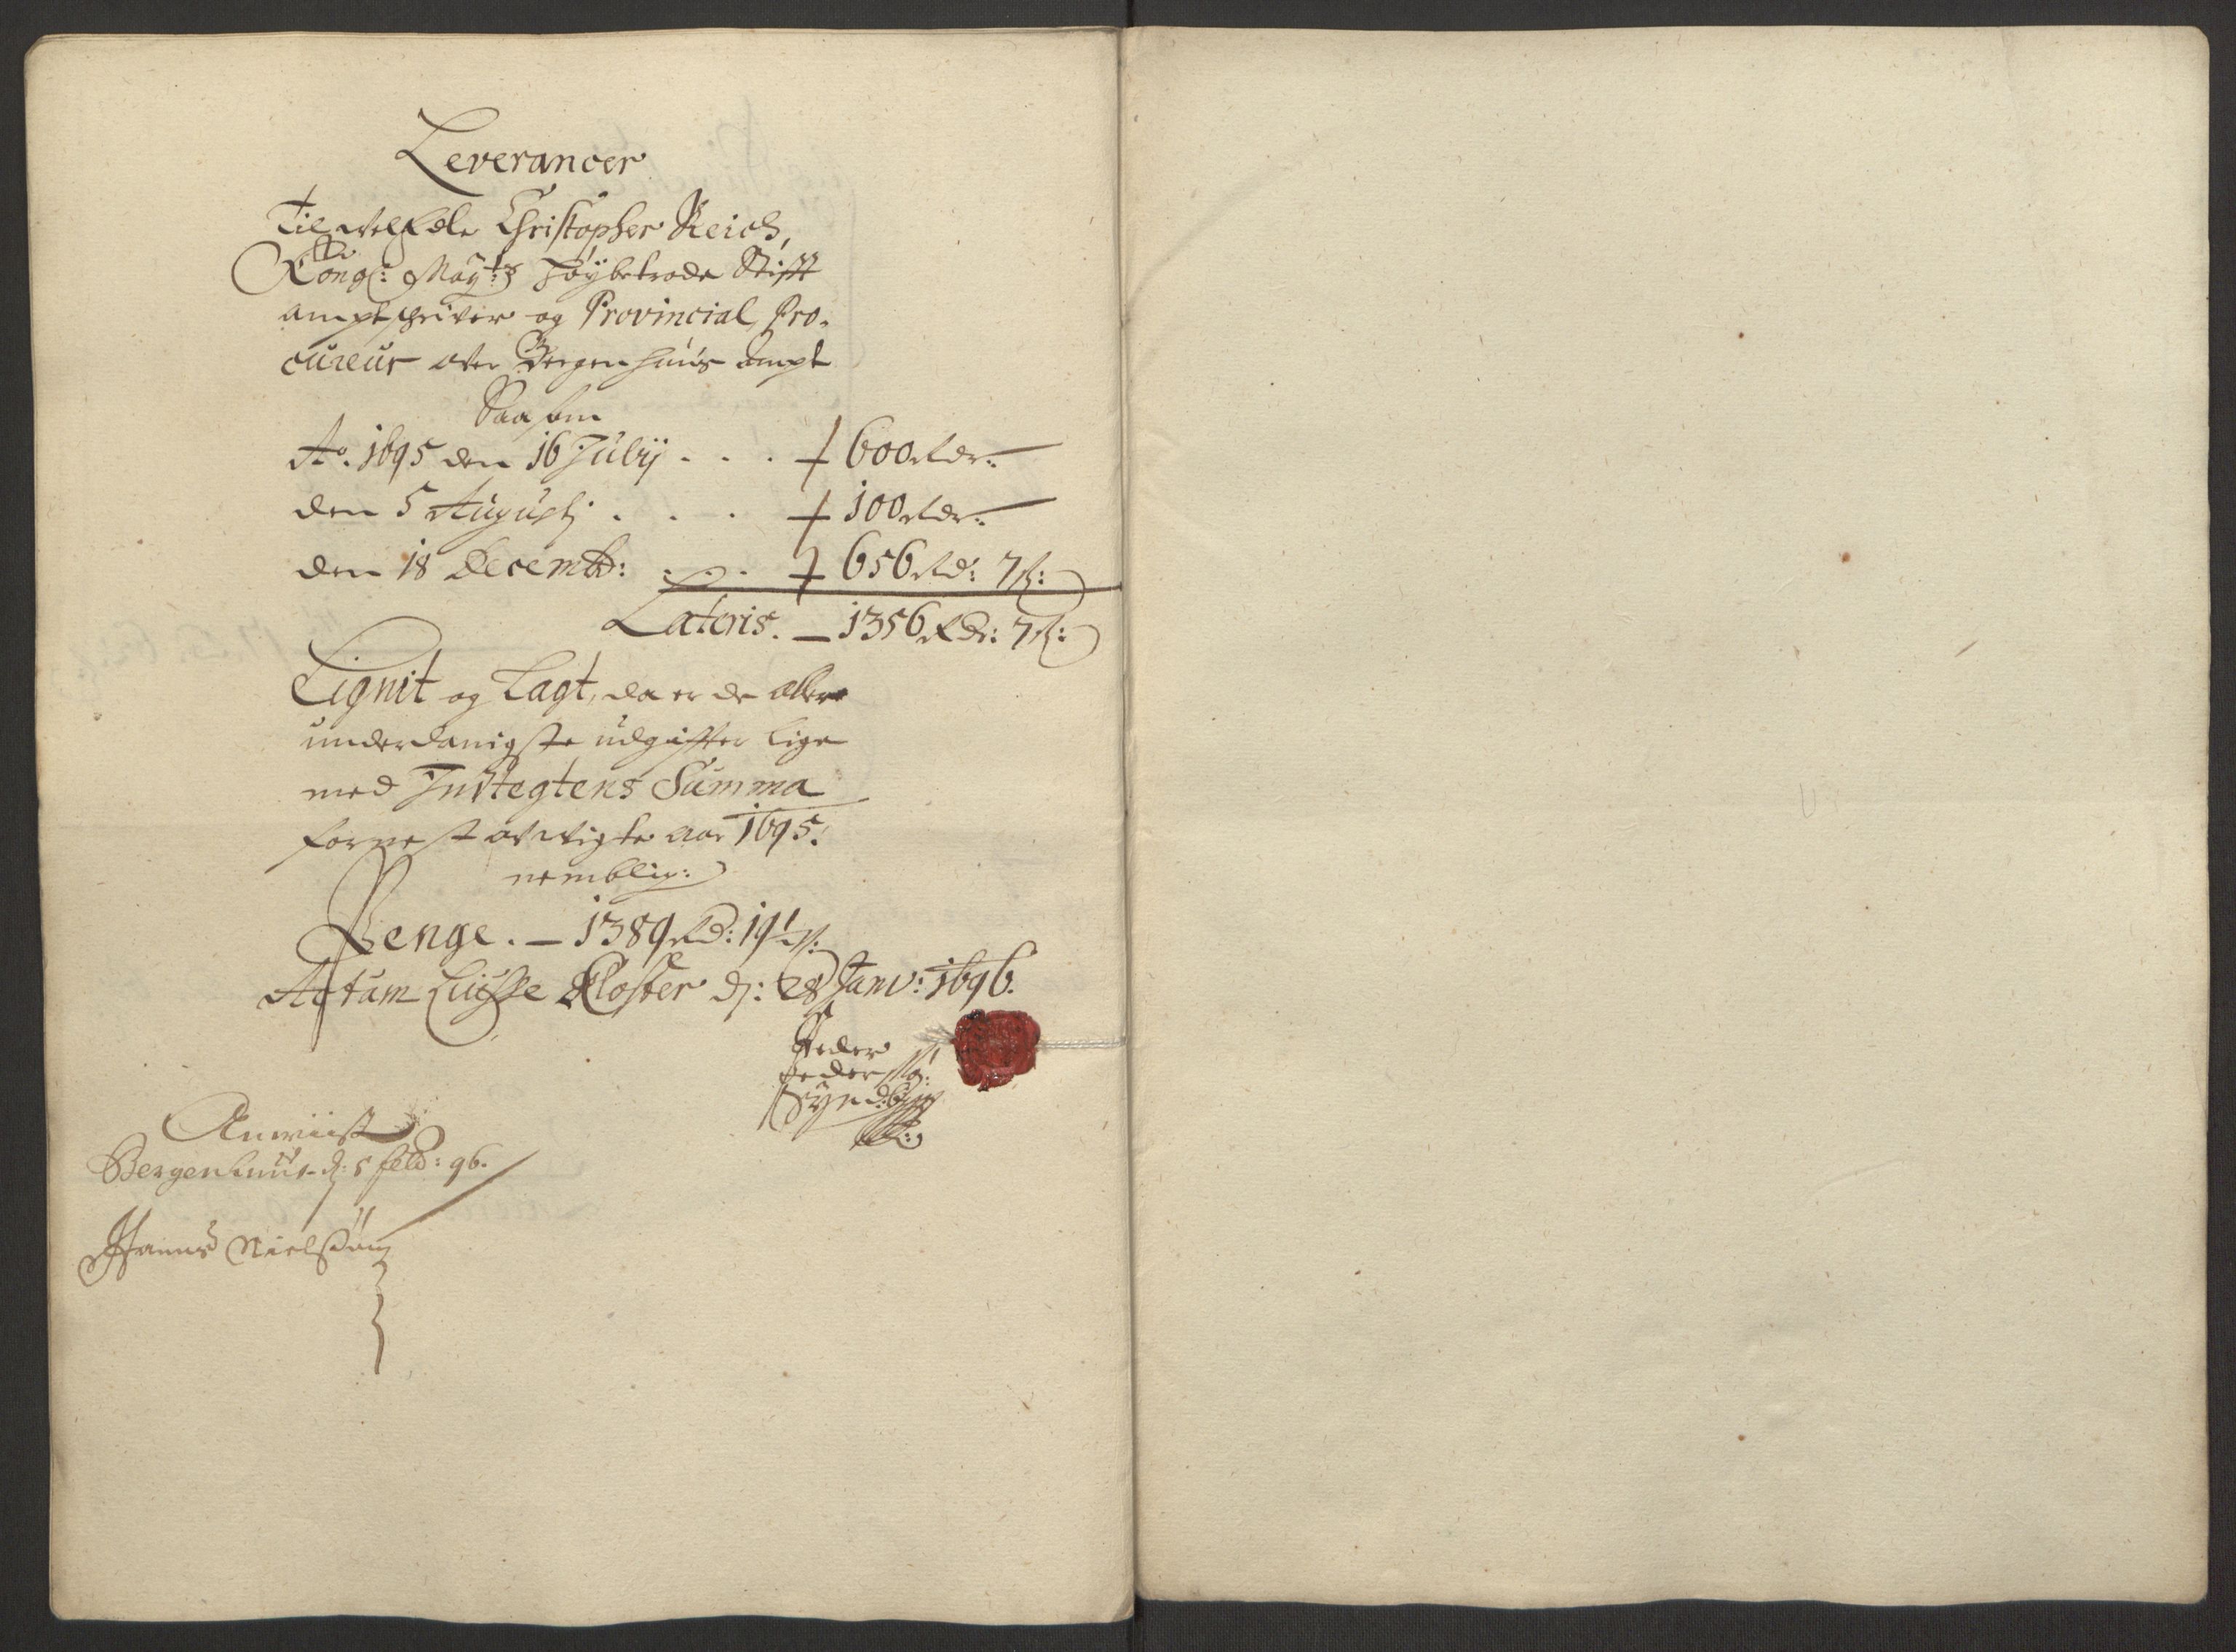 Leverancer
Til WelEdle Christopher Reich,
Kongl: May:ts Høybetrode Stifft
amptschriver og Provincial, Pro-
cureur over Bergenhuus ampt
Saasom
Ao. 1695 den 16 Julij . . . 600 Rdr:
den 5 Augustj . . . 100 Rdr:
den 18 Decembr: . . . 656 Rd: 7 ß:
Lateris. — 1356 Rdr: 7 ß:
Lignit og Lagt, da er de aller
underdanigste udgiffter lige
med Indtegtens Summa
for nest afvigte aar 1695.
nemblig:
Penge. — 1389 Rd: 19½ ß:
Actum Liusse Kloster dj: 28 Janv: 1696.
Peder
Pederssø:
Anviist
Bergenhuus d: 5 feb: 96.
Hanns Nielsøn